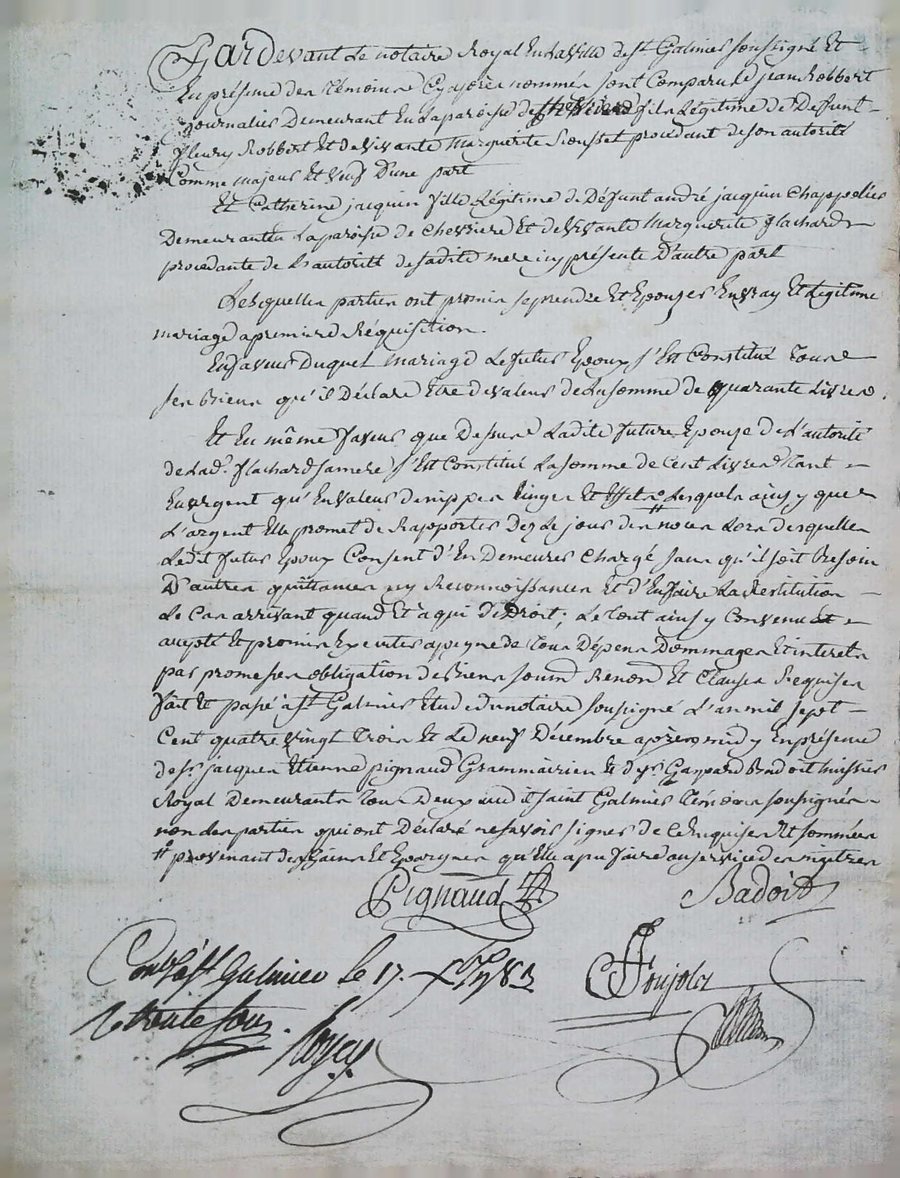 Pardevant Le notaire Royal En La Ville de st Galmier soussigné Et
En présence des témoins Cyaprès nommés sont Comparus jean Robbert
journalier Demeurant En La paroisse de fils Légitime de Defunt
fleury Robbert Et de vivante Marguerite procedant de son autorité
Comme majeur Et veuf D'une part
Et Catherine jacquin fille Légitime de Défunt andré jacquin Chappelier
Demeurant En La paroisse de Chevriere Et de vivante Marguerite flachard
procedante de L'autorité de sadite mere icy présente D'autre part
Lesquelles parties ont promis se prendre Et Epouser En vray Et Légitime
mariage a premiere Réquisition.
En faveur Duquel mariage Le futur Epoux s'Est Constitué Tous
ses biens qu'il Déclare Etre de valeur de La somme de quarante Livres.
Et En même faveur que Dessus Ladite future Epouse de L'autorité
de Lad. flachard sa mere s'Est Constitué La somme de Cent Livres Tant
En argent qu'En valeur de nippes Linges Et Effets Lesquels ainsy que
L'argent Elle promet de Rapporter Dez Le jour des noces Lors desquelles
Ledit futur Epoux Consent d'En Demeurer Chargé sans qu'il soit besoin
D'autres quittances ny Reconnoissances Et d'En faire La Restitution
Le Cas arrivant quand Et à qui de Droit; Le tout ainsy Convenu Et
accepté Et promis Executer a peyne de Tous Dépens Dommages Et interets
par promesses obligation de Biens soumd Renond Et Clauses Requises
fait Et passé a st Galmier Etude du notaire soussigné L'an mil sept
Cent quatre vingt Trois Et Le neuf Décembre après midy En présence
de sr jacques Etienne pignaud Grammairien Et de sr Gaspard Badoit huissier
Royal Demeurants Tous Deux audit saint Galmier Témoins soussignés
non Les parties qui ont Déclaré ne savoir signer de Ce Enquises Et sommées
# provenant des Gains Et Epargnes qu'Elle a pu faire au service des maîtres
Pignaud Badoit
Conlé à st Galmier le 17. Xbre 1783 Foujols